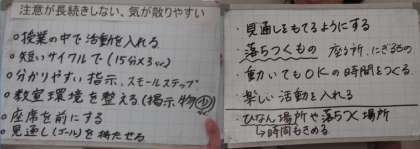 注意が長続きしない、気が散りやすい
○授業の中で活動を入れる
○短いサイクルで(15分×3セット)
○分かりやすい指示、スモールステップ
○教室環境を整える(掲示物少)
○座席を前にする
○見通し(ゴール)を持たせる
・見通しをもてるようにする
・落ちつくもの 座る所、にぎるもの
・動いてもOKの時間をつくる
・楽しい活動を入れる
・ひなん場所や落ちつく場所
↳時間もきめる